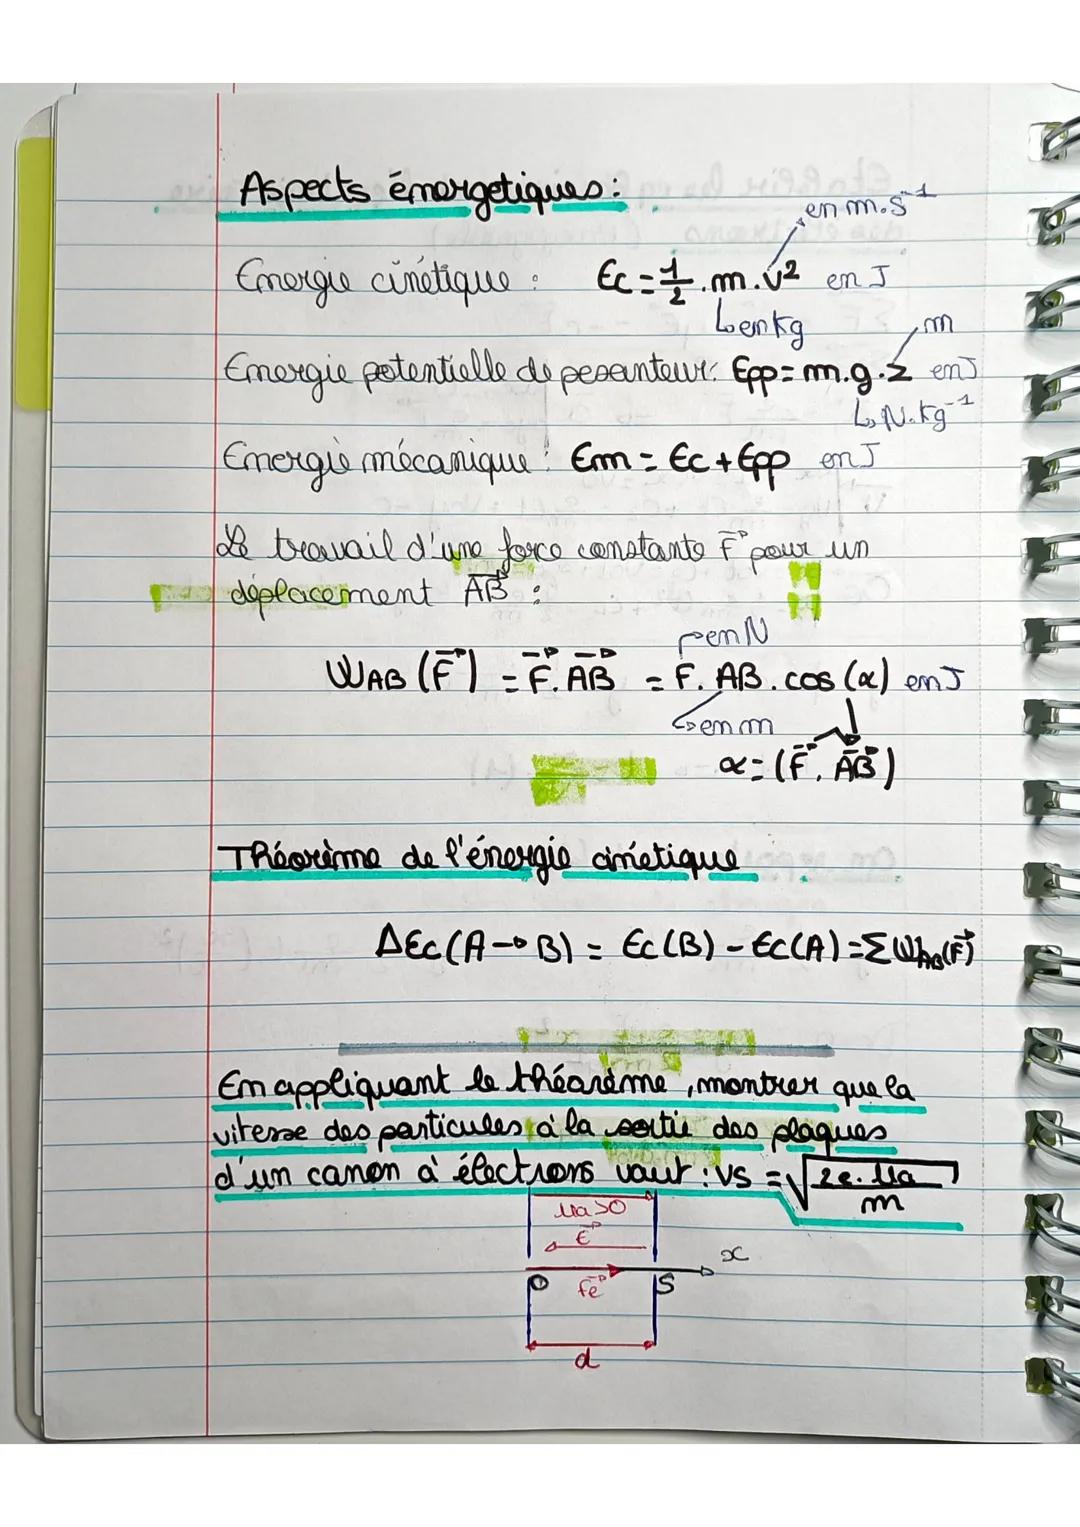 Aspects énergetiques :
en m.s⁻¹
Energie cinétique : Ec = 1/2 . m . v² en J
en kg
m
Energie potentielle de pesanteur : Epp = m . g . z en J
N.kg⁻¹
Energie mécanique : Em = Ec + Epp en J
Le travail d'une force constante F⃗ pour un
déplacement AB⃗ :
en N
WAB (F⃗) = F⃗ . AB⃗ = F . AB . cos (α) en J
en m
α = (F⃗ . AB⃗)
Théorème de l'énergie cinétique
ΔEc (A → B) = Ec (B) - Ec (A) = Σ WAB (F⃗)
En appliquant le théorème , montrer que la
vitesse des particules à la sortie des plaques
d'un canon à électrons vaut : vs = √(2e . Ua / m)
Ua > 0
E⃗
x
O Fe⃗ S
d